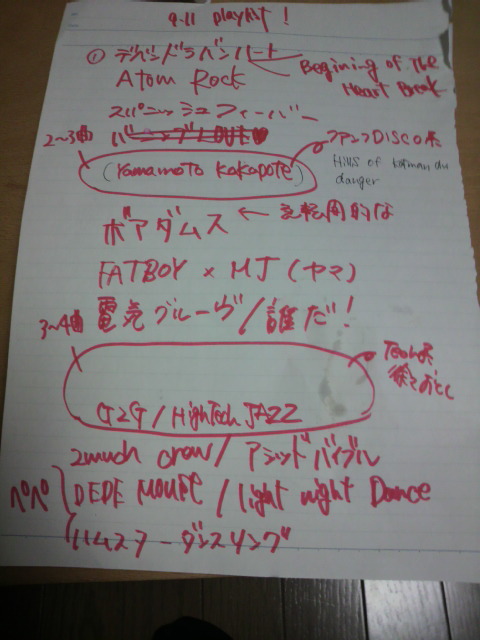 9.11 playlist!
① デヴェンドラバンハート ← Begining of The Heart Break
Atom Rock
スパニッシュフィーバー
2~3曲
(Yamamoto Kakapote)
ファンクDISCO系
Hills of katman du
danger
ボアダムス ← 逆転周的な
FATBOY × MJ (ヤマ)
電気グルーヴ/誰だ!
3~4曲
Techno系
徐々おとく
G2G / HighTech JAZZ
2much crew / アシッドバイブル
ペペ
DEDE MOUSE / light night Dance
ハムスターダンスソング